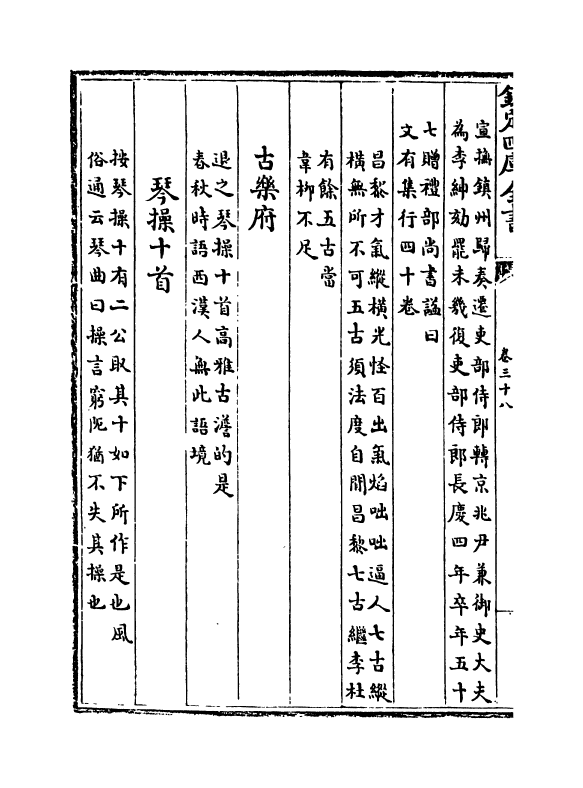 欽定四庫全書
卷三十八
宣撫鎮州歸奏遷吏部侍郎轉京兆尹兼御史大夫
為李紳劾罷未幾復吏部侍郎長慶四年卒年五十
七贈禮部尚書諡曰
文有集行四十卷
昌黎才氣縱橫光怪百出氣焰咄咄逼人七古縱
橫無所不可五古須法度自閒昌黎七古繼李杜
有餘五古當
韋柳不足
古樂府
退之琴操十首高雅古澹的是
春秋時語西漢人無此語境
琴操十首
按琴操十有二公取其十如下所作是也風
俗通云琴曲曰操言窮阨猶不失其操也